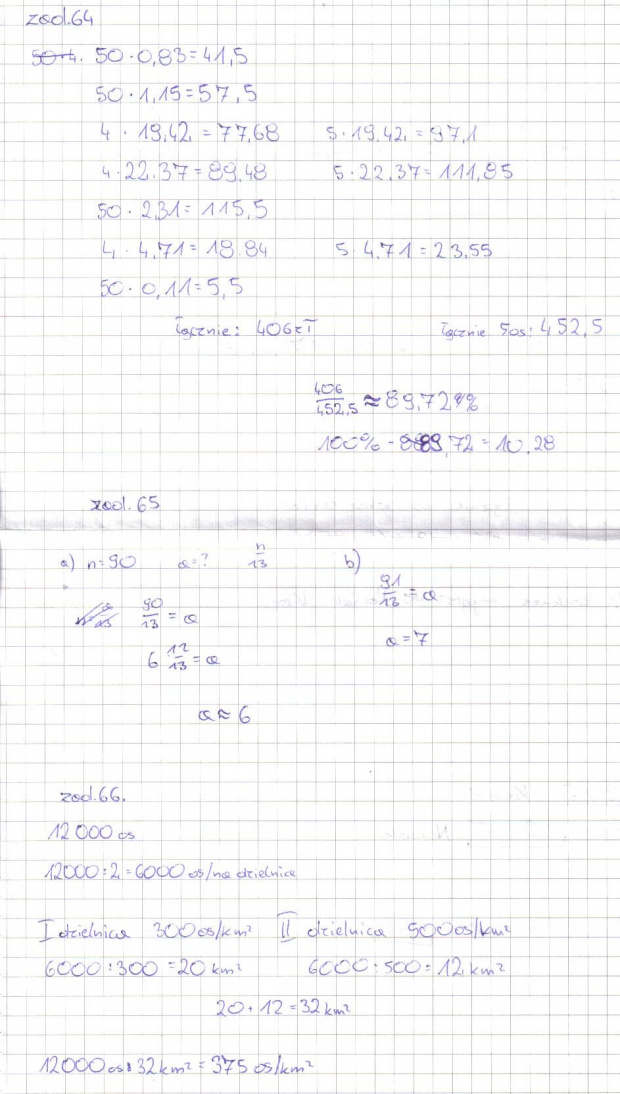 zad.64
50·4. 50·0,83=41,5
50·1,15=57,5
4·19,42=77,68 5·19,42=97,1
4·22,37=89,48 5·22,37=111,85
50·2,31=115,5
4·4,71=18.84 5·4,71=23,55
50·0,11=5,5
łącznie: 406zł łącznie 5os: 452,5
406/452,5 ≈ 89,72%
100% - 89,72=10,28
zad.65
a) n=90 a=? n/13 b)
90/13=a 91/13=a
6 12/13=a a=7
a≈6
zad.66.
12 000 os
12000:2=6000 os/na dzielnice
I dzielnica 300os/km² II dzielnica 500os/km²
6000:300=20km² 6000:500=12km²
20+12=32km²
12000os:32km²=375os/km²